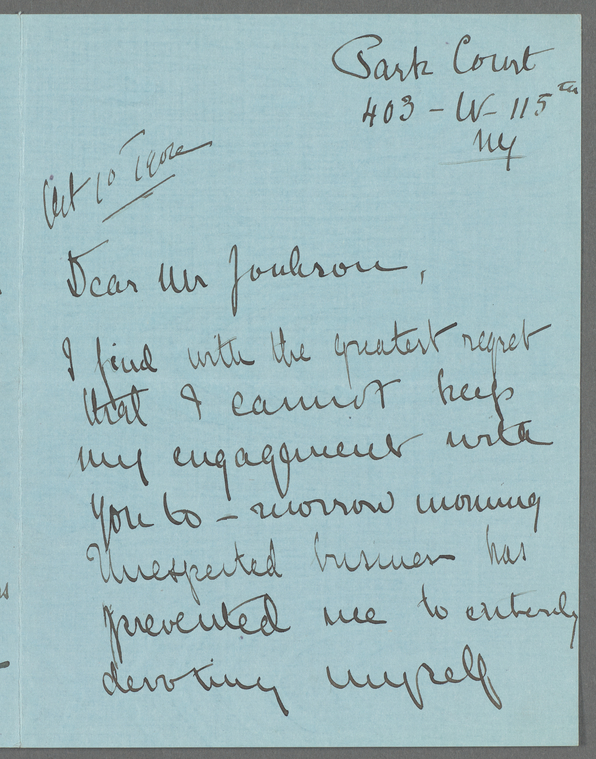 Park Court
403 - W - 115th
NY
Oct 10
Dear Mr Jonhson,
I find with the greatest regret
that I cannot keep
my engagement with
you to-morrow morning
Unexpected business has
prevented me to entirely
devoting myself